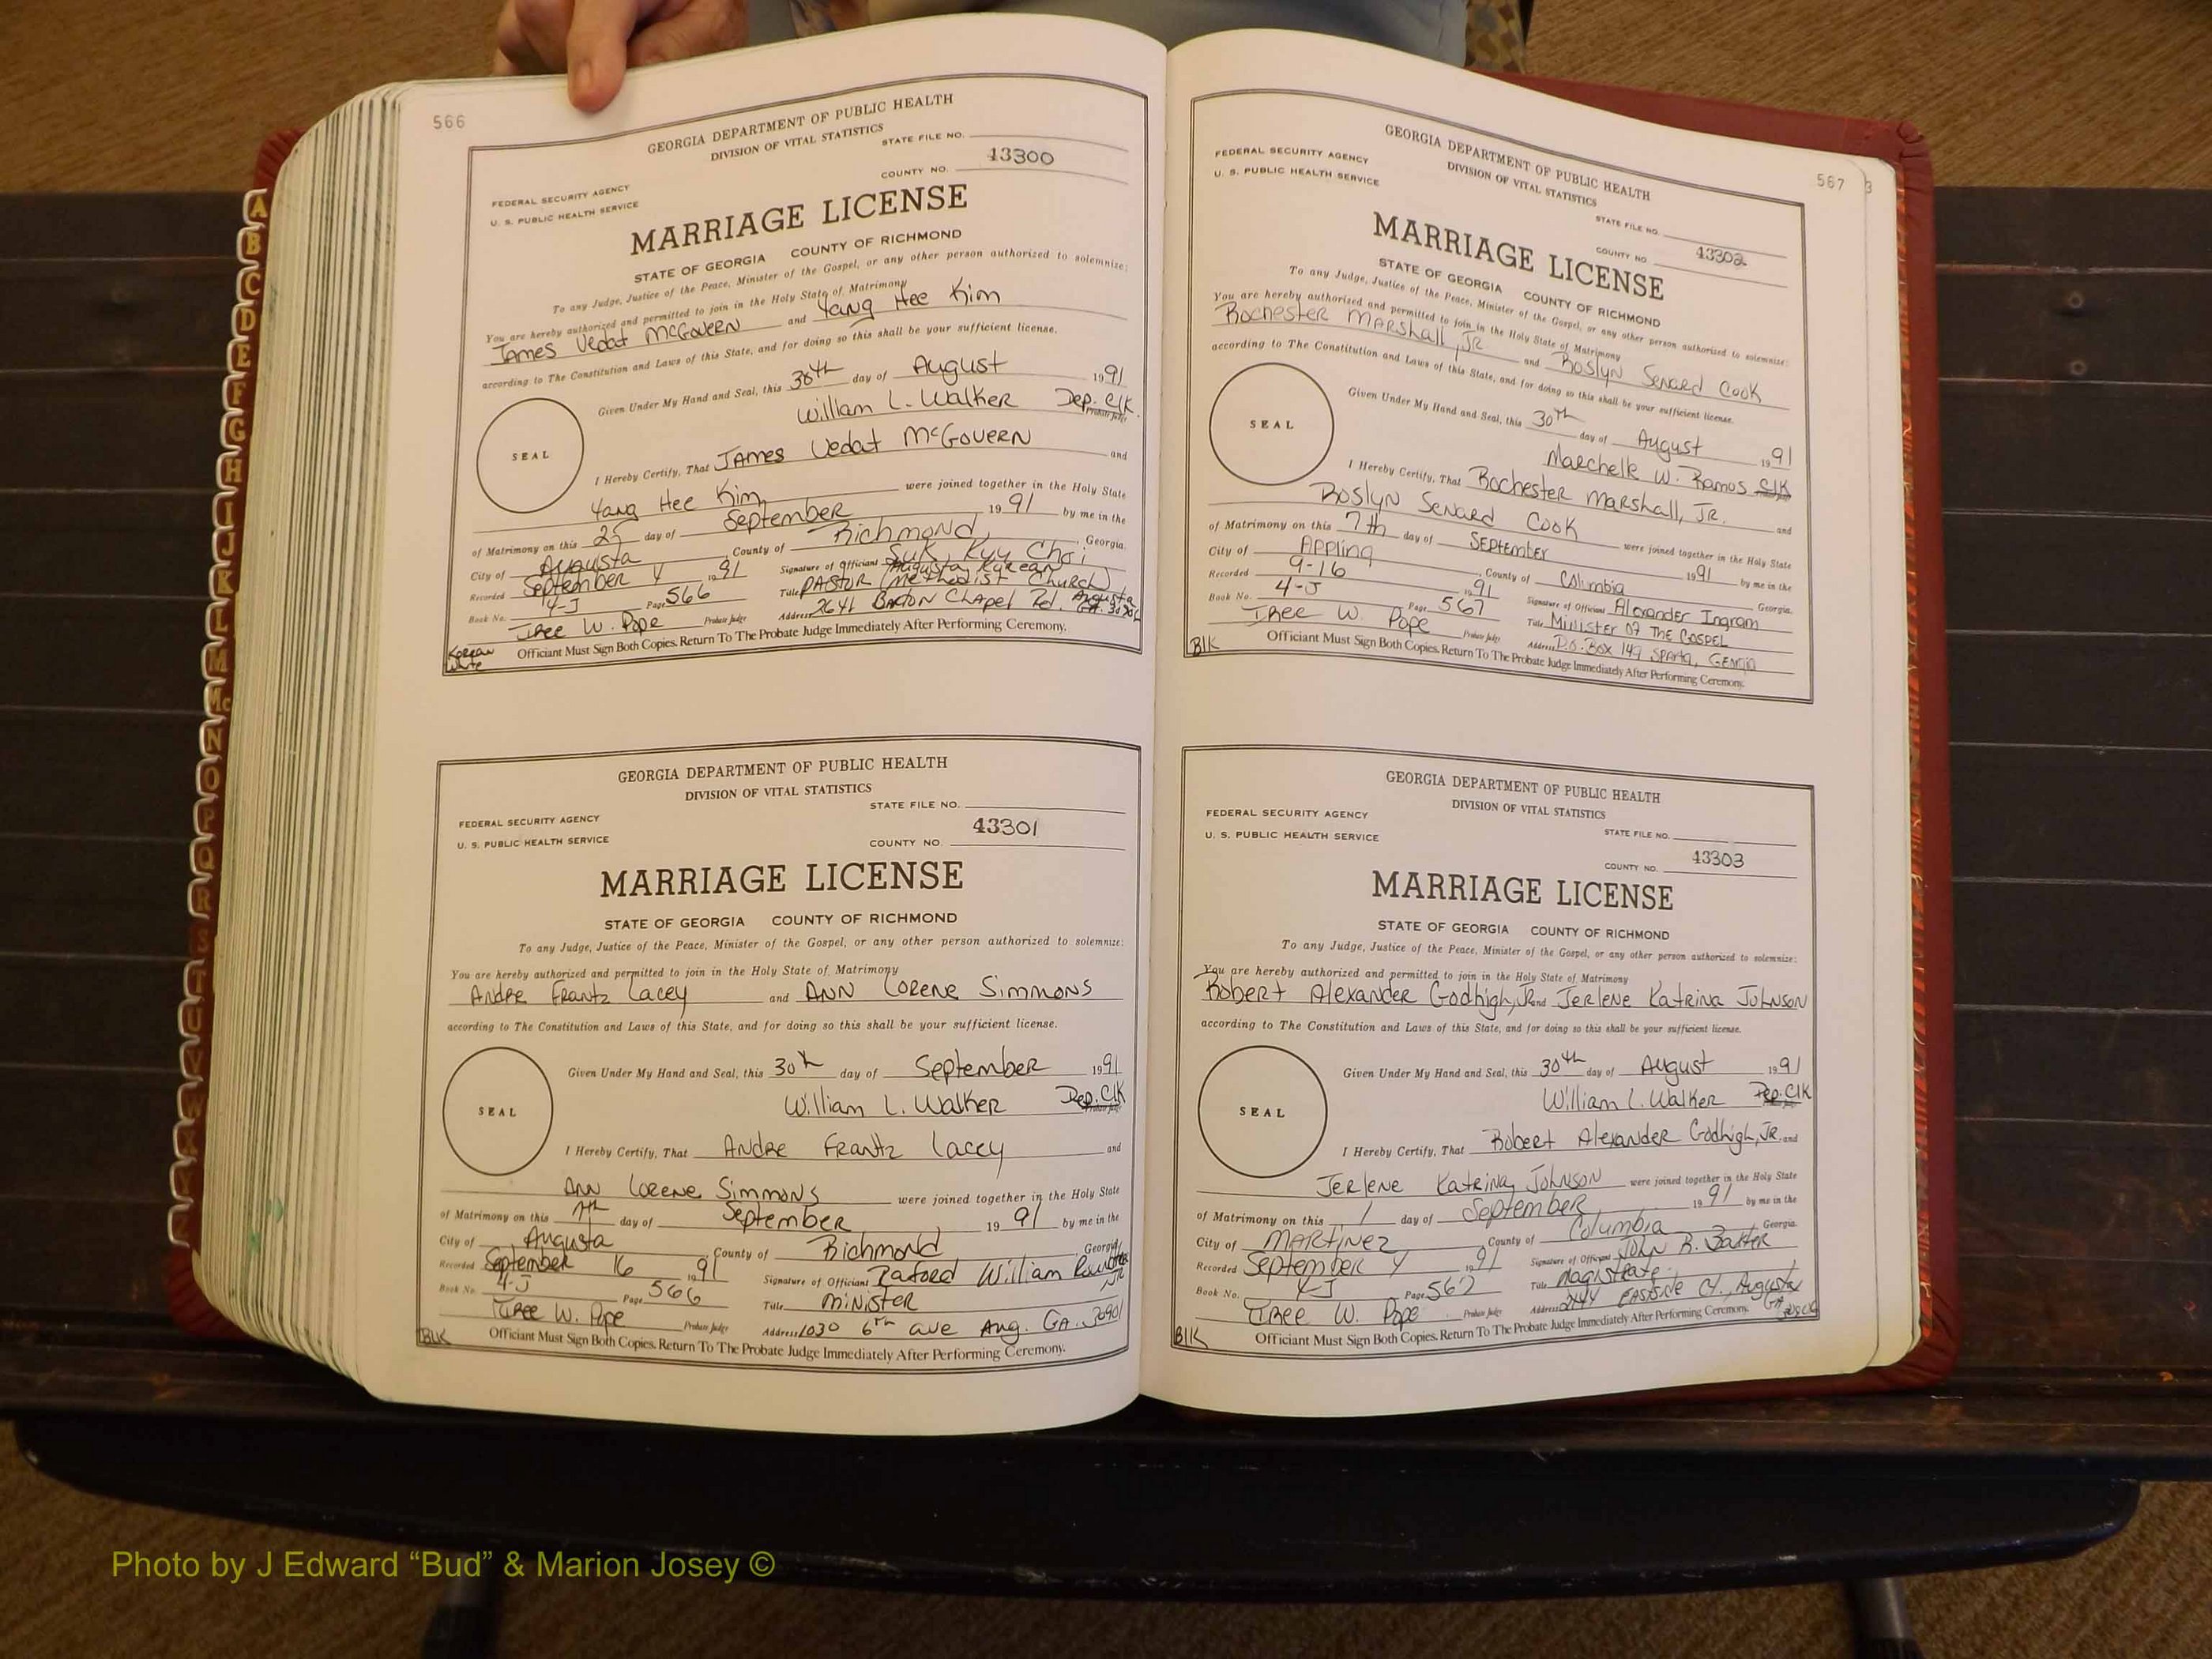 566
GEORGIA DEPARTMENT OF PUBLIC HEALTH
DIVISION OF VITAL STATISTICS
STATE FILE NO.
COUNTY NO. 43300
FEDERAL SECURITY AGENCY
U. S. PUBLIC HEALTH SERVICE
MARRIAGE LICENSE
STATE OF GEORGIA COUNTY OF RICHMOND
To any Judge, Justice of the Peace, Minister of the Gospel, or any other person authorized to solemnize:
You are hereby authorized and permitted to join in the Holy State of Matrimony
James Vedat McGovern and Yang Hee Kim
according to The Constitution and Laws of this State, and for doing so this shall be your sufficient license.
Given Under My Hand and Seal, this 30th day of August 1991
William L. Walker Dep. Clk.
Probate Judge
SEAL
I Hereby Certify, That James Vedat McGovern and
Yang Hee Kim were joined together in the Holy State
of Matrimony on this day of September 1991 by me in the
City of Augusta, County of Richmond, Georgia.
Recorded September 4 1991 Signature of Officiant Suk Kyu Choi
Book No. 4-J Page 566 Title Pastor (Augusta Korean Methodist Church)
Address 2641 Barton Chapel Rd. Augusta GA.
Tree W. Pope Probate Judge
Officiant Must Sign Both Copies. Return To The Probate Judge Immediately After Performing Ceremony.
Korean
White
GEORGIA DEPARTMENT OF PUBLIC HEALTH
DIVISION OF VITAL STATISTICS
STATE FILE NO.
COUNTY NO. 43301
FEDERAL SECURITY AGENCY
U. S. PUBLIC HEALTH SERVICE
MARRIAGE LICENSE
STATE OF GEORGIA COUNTY OF RICHMOND
To any Judge, Justice of the Peace, Minister of the Gospel, or any other person authorized to solemnize:
You are hereby authorized and permitted to join in the Holy State of Matrimony
Andre Frantz Lacey and Ann Lorene Simmons
according to The Constitution and Laws of this State, and for doing so this shall be your sufficient license.
Given Under My Hand and Seal, this 30th day of September 1991
William L. Walker Dep. Clk
Probate Judge
SEAL
I Hereby Certify, That Andre Frantz Lacey and
Ann Lorene Simmons were joined together in the Holy State
of Matrimony on this 7th day of September 1991 by me in the
City of Augusta, County of Richmond, Georgia
Recorded September 16 1991 Signature of Officiant Raford William
Book No. 4-J Page 566 Title Minister
Tree W. Pope Probate Judge Address 1030 6th Ave Aug. GA. 30901
Blk Officiant Must Sign Both Copies. Return To The Probate Judge Immediately After Performing Ceremony.
567
GEORGIA DEPARTMENT OF PUBLIC HEALTH
DIVISION OF VITAL STATISTICS
STATE FILE NO.
COUNTY NO. 43302
FEDERAL SECURITY AGENCY
U. S. PUBLIC HEALTH SERVICE
MARRIAGE LICENSE
STATE OF GEORGIA COUNTY OF RICHMOND
To any Judge, Justice of the Peace, Minister of the Gospel, or any other person authorized to solemnize:
You are hereby authorized and permitted to join in the Holy State of Matrimony
Rochester Marshall, Jr and Roslyn Senard Cook
according to The Constitution and Laws of this State, and for doing so this shall be your sufficient license.
Given Under My Hand and Seal, this 30th day of August 1991
Marchelle W. Ramos Clk
SEAL
I Hereby Certify, That Rochester Marshall, Jr. and
Roslyn Senard Cook were joined together in the Holy State
of Matrimony on this 7th day of September 1991 by me in the
City of Appling, County of Columbia Georgia.
Recorded 9-16 1991 Signature of Officiant Alexander Ingram
Book No. 4-J Page 567 Title Minister of The Gospel
Tree W. Pope Probate Judge Address P.O. Box 149 Sparta, Georgia
Blk Officiant Must Sign Both Copies. Return To The Probate Judge Immediately After Performing Ceremony.
GEORGIA DEPARTMENT OF PUBLIC HEALTH
DIVISION OF VITAL STATISTICS
STATE FILE NO.
COUNTY NO. 43303
FEDERAL SECURITY AGENCY
U. S. PUBLIC HEALTH SERVICE
MARRIAGE LICENSE
STATE OF GEORGIA COUNTY OF RICHMOND
To any Judge, Justice of the Peace, Minister of the Gospel, or any other person authorized to solemnize:
You are hereby authorized and permitted to join in the Holy State of Matrimony
Robert Alexander Godhigh, Jr. and Jerlene Katrina Johnson
according to The Constitution and Laws of this State, and for doing so this shall be your sufficient license.
Given Under My Hand and Seal, this 30th day of August 1991
William L. Walker Dep. Clk
SEAL
I Hereby Certify, That Robert Alexander Godhigh, Jr. and
Jerlene Katrina Johnson were joined together in the Holy State
of Matrimony on this 1 day of September 1991 by me in the
City of Martinez, County of Columbia Georgia.
Recorded September 4 1991 Signature of Officiant John R. Baxter
Book No. 4-J Page 567 Title Magistrate
Tree W. Pope Probate Judge Address 2144 Eastside Ct., Augusta, GA
Blk Officiant Must Sign Both Copies. Return To The Probate Judge Immediately After Performing Ceremony.
A
B
C
D
E
F
G
H
I
J
K
L
M
Mc
N
O
P
Q
R
S
T
U
V
W
Photo by J Edward “Bud” & Marion Josey ©